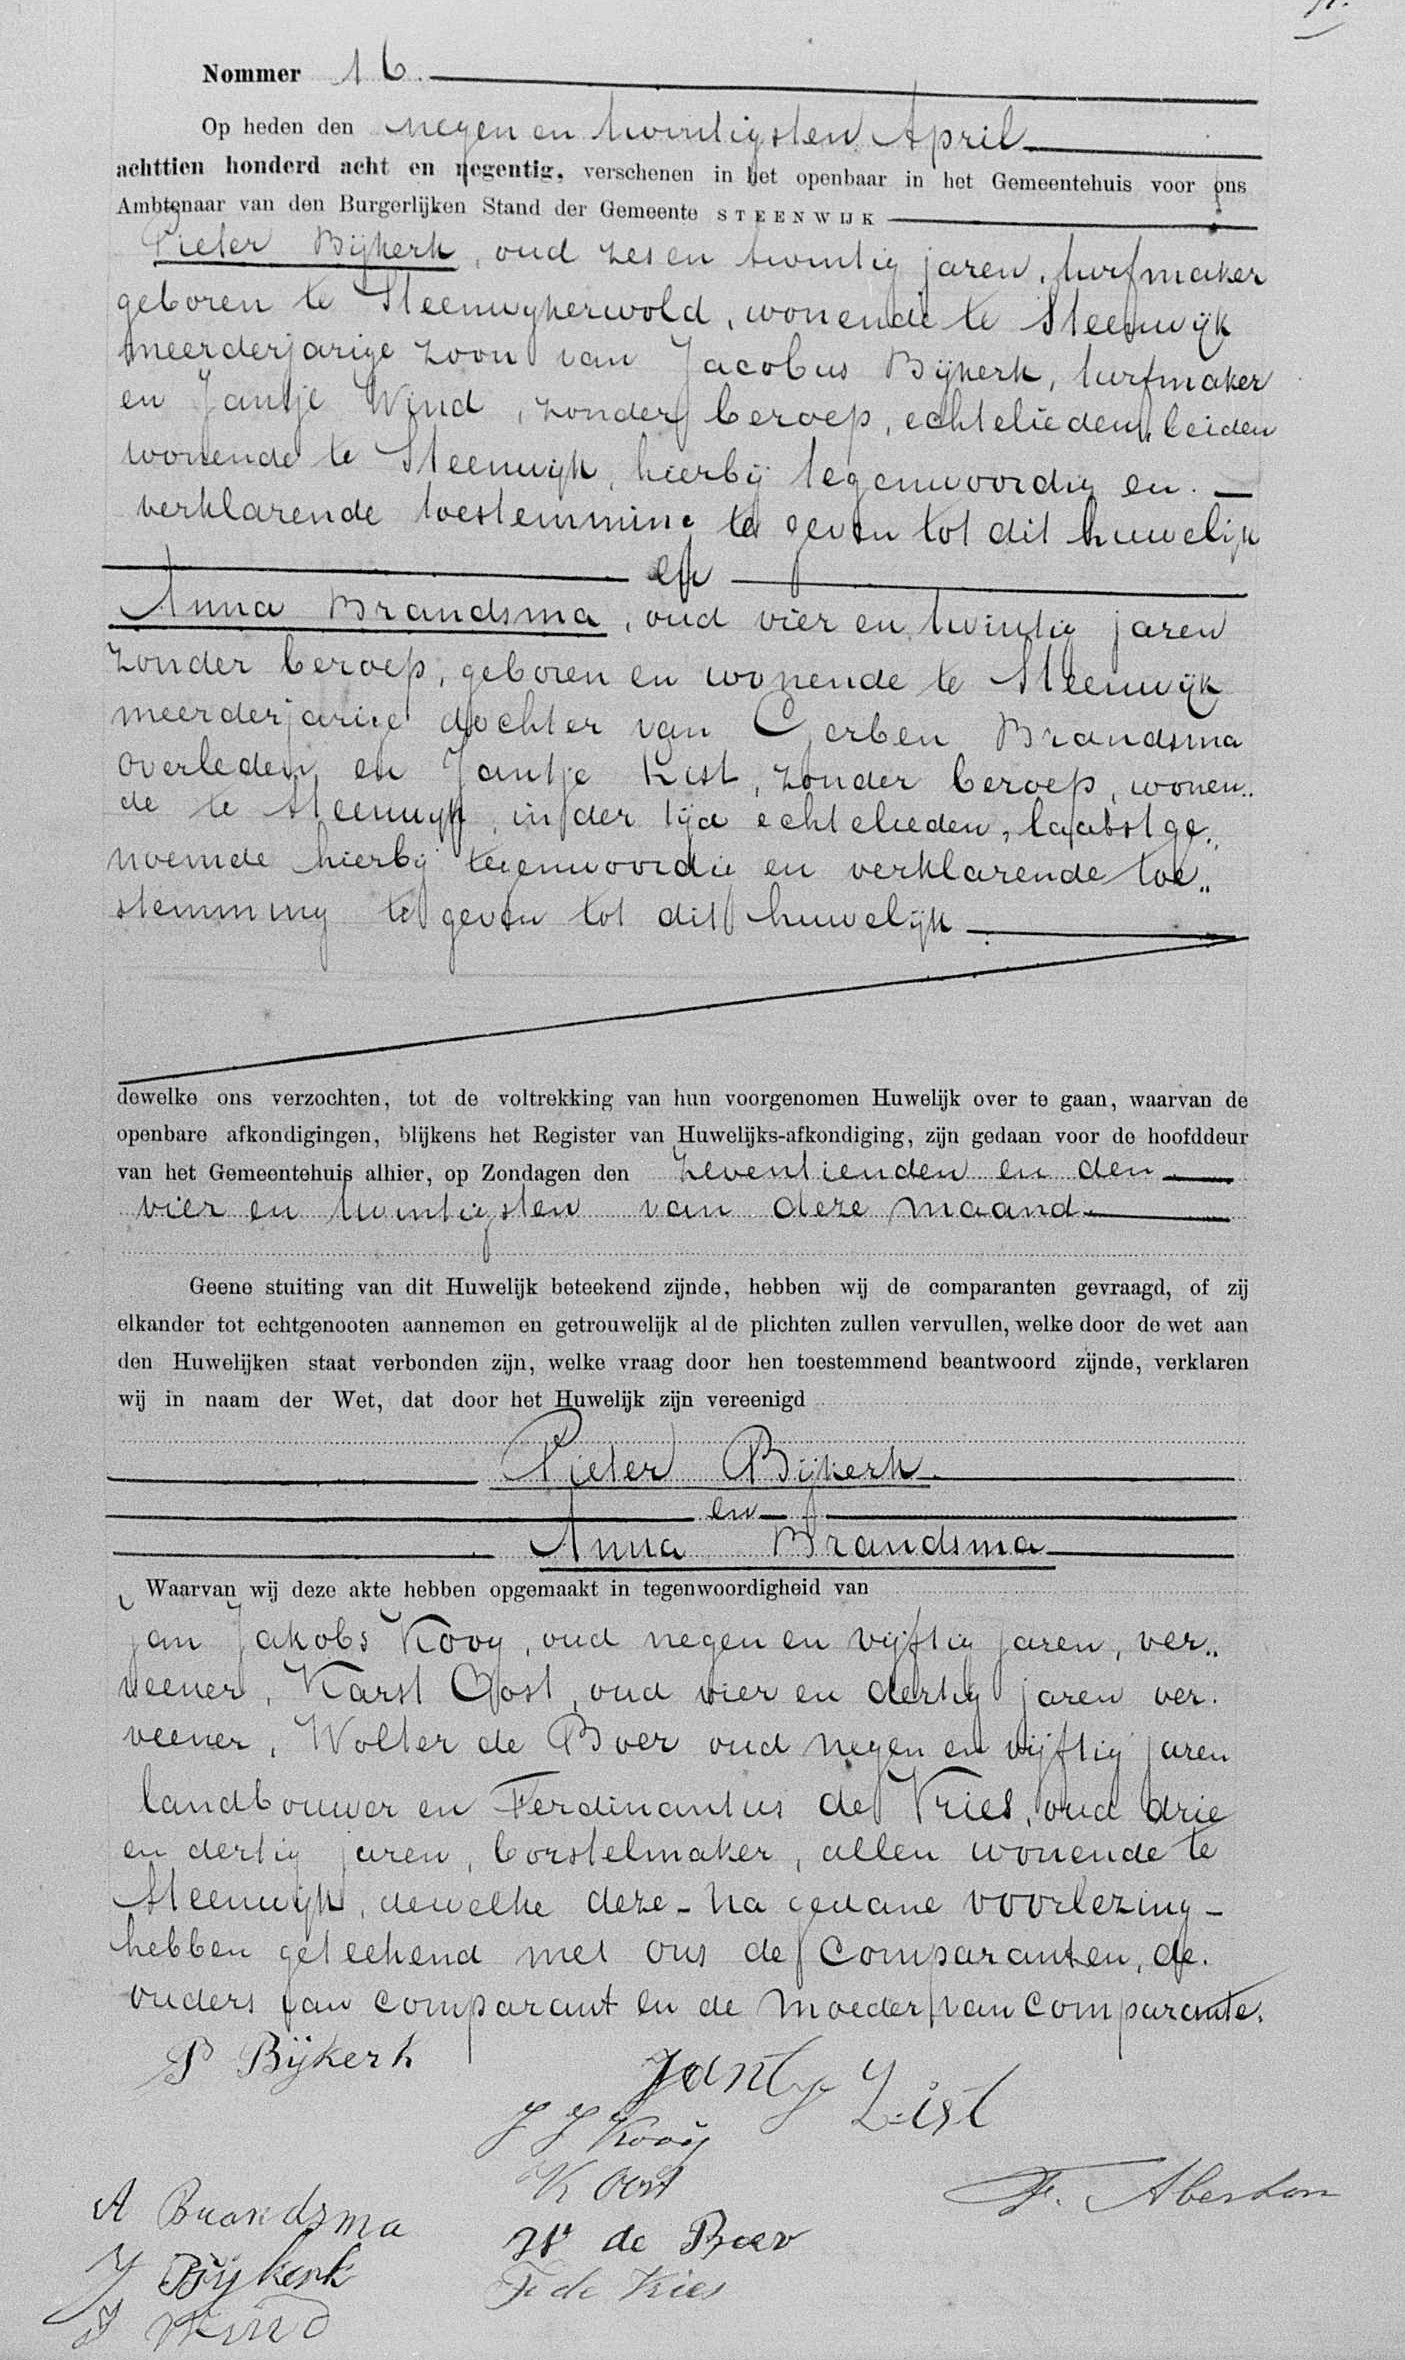 Nommer 16.
Op heden den negen en twintigsten April
achttien honderd acht en negentig, verschenen in het openbaar in het Gemeentehuis voor ons
Ambtenaar van den Burgerlijken Stand der Gemeente STEENWIJK
Pieter Bijkerk, oud zes en twintig jaren, turfmaker
geboren te Steenwijkerwold, wonende te Steenwijk
meerderjarige zoon van Jacobus Bijkerk, turfmaker
en Jantje Wind, zonder beroep, echtelieden, beiden
wonende te Steenwijk, hierbij tegenwoordig en
verklarende toestemming te geven tot dit huwelijk
en
Anna Brandsma, oud vier en twintig jaren
zonder beroep, geboren en wonende te Steenwijk
meerderjarige dochter van Gerben Brandsma
overleden, en Jantje Kist, zonder beroep, wonen„
de te Steenwijk, in der tijd echtelieden, laatstge„
noemde hierbij tegenwoordig en verklarende toe„
stemming te geven tot dit huwelijk
dewelke ons verzochten, tot de voltrekking van hun voorgenomen Huwelijk over te gaan, waarvan de
openbare afkondigingen, blijkens het Register van Huwelijks-afkondiging, zijn gedaan voor de hoofddeur
van het Gemeentehuis alhier, op Zondagen den zeventienden en den
vier en twintigsten van deze maand.
Geene stuiting van dit Huwelijk beteekend zijnde, hebben wij de comparanten gevraagd, of zij
elkander tot echtgenooten aannemen en getrouwelijk al de plichten zullen vervullen, welke door de wet aan
den Huwelijken staat verbonden zijn, welke vraag door hen toestemmend beantwoord zijnde, verklaren
wij in naam der Wet, dat door het Huwelijk zijn vereenigd
Pieter Bijkerk.
en
Anna Brandsma
Waarvan wij deze akte hebben opgemaakt in tegenwoordigheid van
Jan Jakobs Kooy, oud negen en vijftig jaren, ver„
veener, Karst Oost, oud vier en dertig jaren ver.
veener, Wolter de Boer oud negen en vijftig jaren
landbouwer en Ferdinantus de Vries, oud drie
en dertig jaren, borstelmaker, allen wonende te
Steenwijk, dewelke deze - na gedane voorlezing -
hebben geteekend met ons de comparanten, de
ouders van comparant en de moeder van comparante.
P Bijkerk
Jantje Kist
J J Kooij
K Oost
A Brandsma
W de Boer
J Bijkerk
F de Vries
J Wind